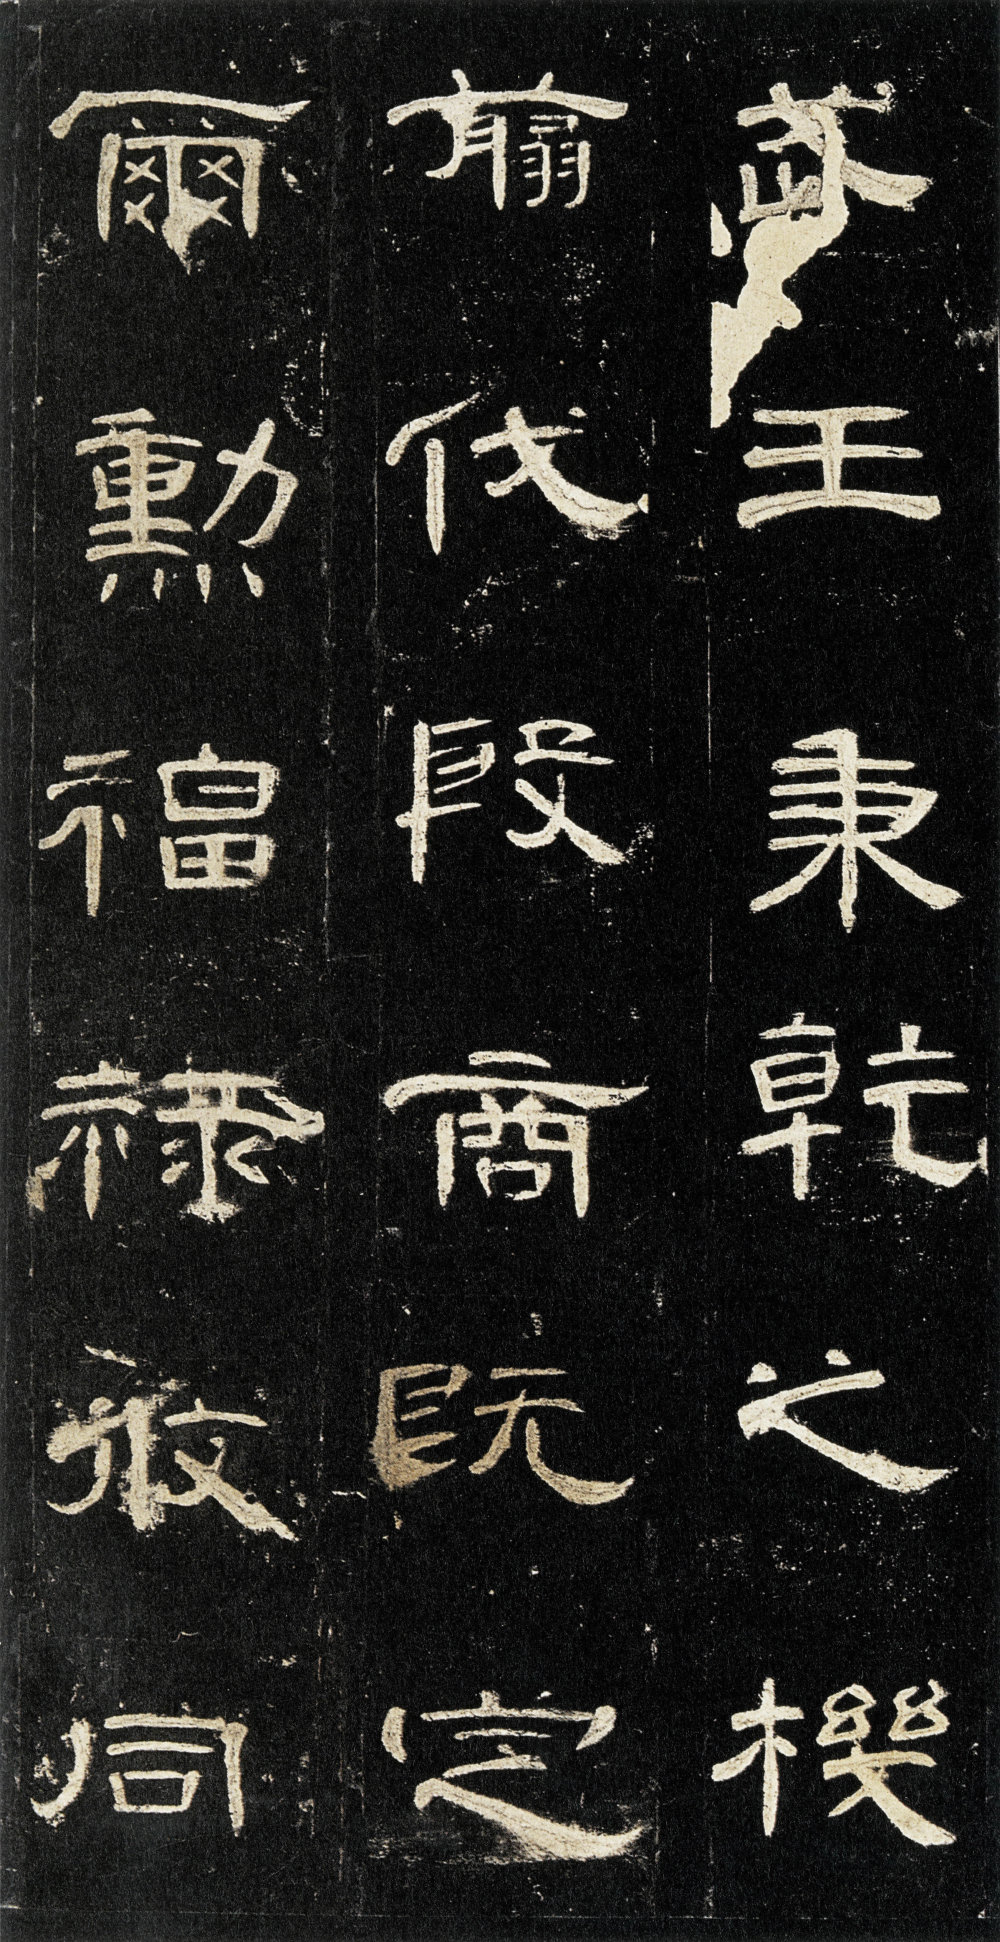 武王秉乾之機
翦伐殷商既定
爾勳福祿攸同